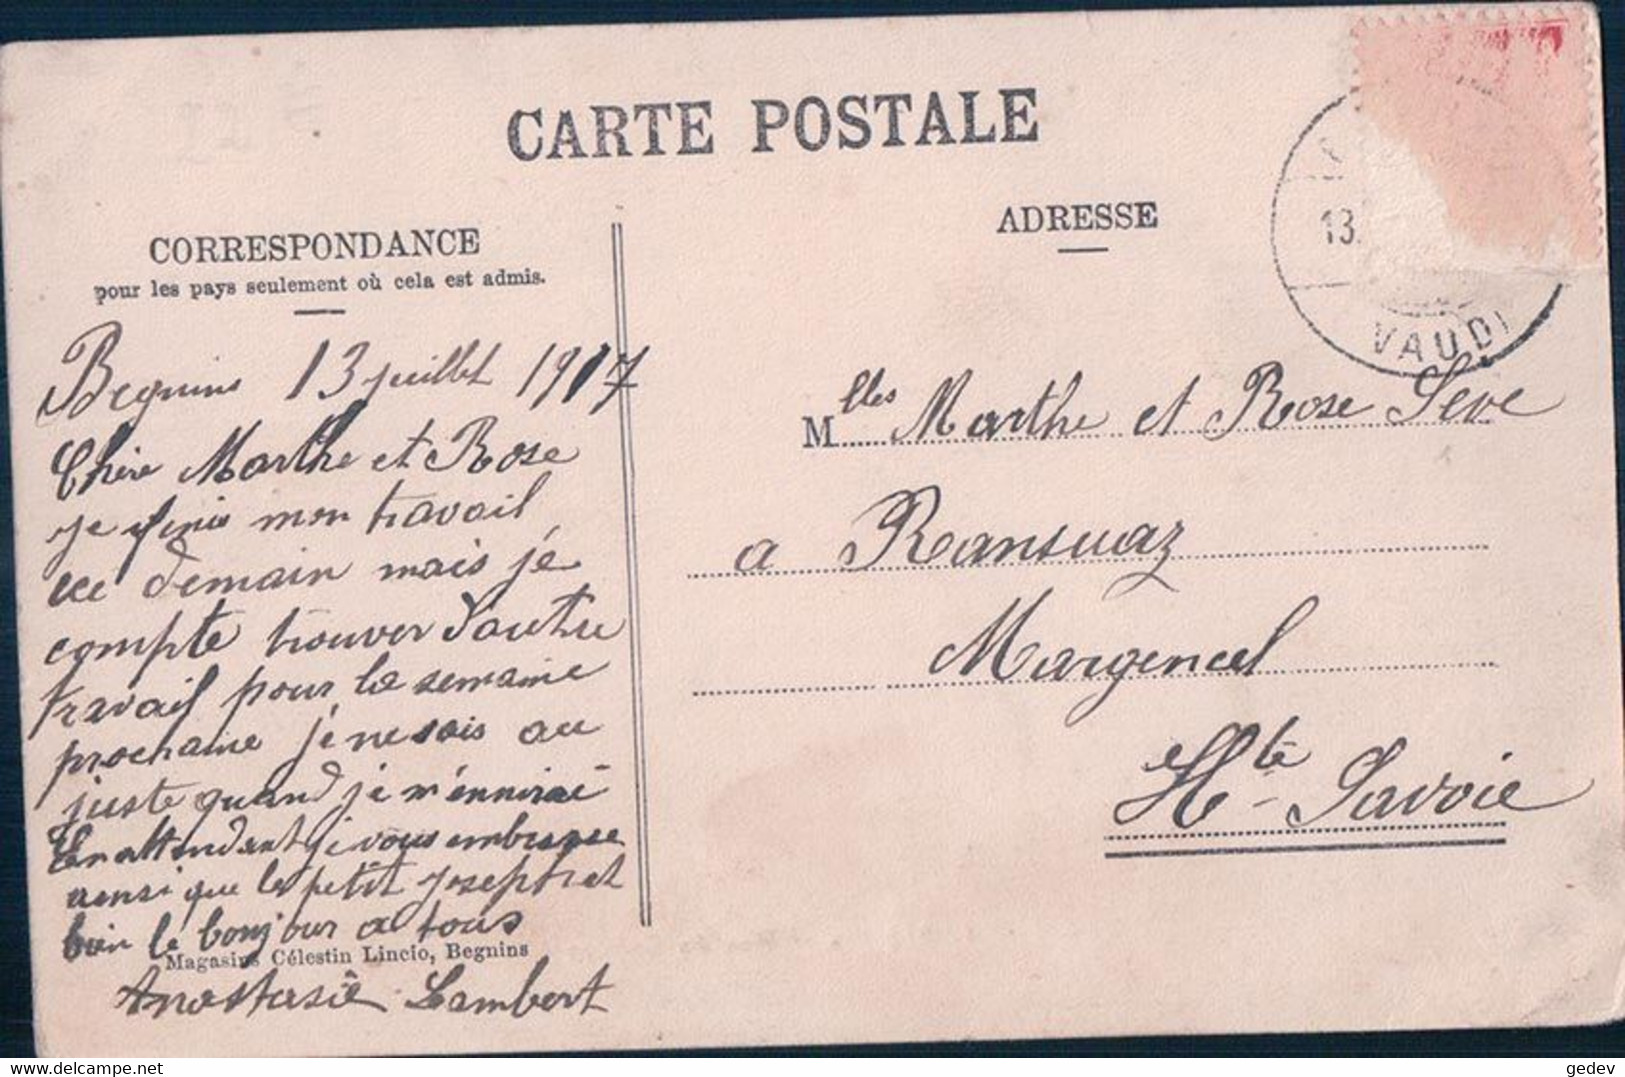 CARTE POSTALE
CORRESPONDANCE
pour les pays seulement où cela est admis.
ADRESSE
13.
VAUD
Begnins 13 juillet 1917
Chère Marthe et Rose
je finis mon travail
demain mais je
compte trouver d'autre
travail pour la semaine
prochaine je ne sais au
juste quand je m'ennirai
En attendant je vous embrasse
ainsi que le petit Joseph et
bien le bonjour a tous
Magasins Célestin Lincio, Begnins
Anastasie Lambert
Mlles Marthe et Rose Seve
a Ransuaz
Margencel
Hte-Savoie
gedev